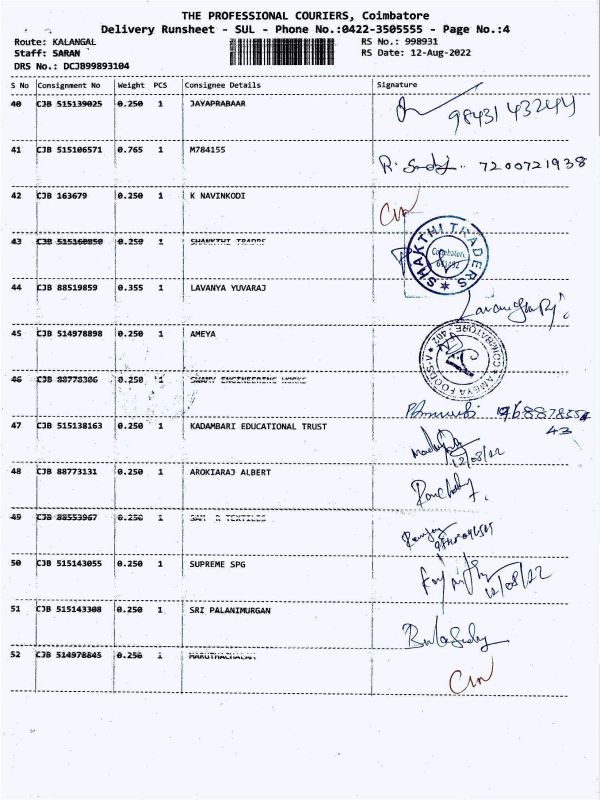 THE PROFESSIONAL COURIERS, Coimbatore
Delivery Runsheet - SUL - Phone No.:0422-3505555 - Page No.:4
Route: KALANGAL RS No.: 998931
Staff: SARAN RS Date: 12-Aug-2022
DRS No.: DCJB99893104
S No Consignment No Weight PCS Consignee Details Signature
40 CJB 515139025 0.250 1 JAYAPRABAAR
98431 43244
41 CJB 515106571 0.765 1 M784155
7200721938
42 CJB 163679 0.250 1 K NAVINKODI
43 CJB 515160850 0.250 1 SHANKTHI TRADRS
SHAKTHI TRADERS
Coimbatore
44 CJB 88519859 0.355 1 LAVANYA YUVARAJ
45 CJB 514978898 0.250 1 AMEYA
AMEYA FOODS
COIMBATORE
46 CJB 88778306 0.250 1 SWAMY ENGINEERING WORKS
47 CJB 515138163 0.250 1 KADAMBARI EDUCATIONAL TRUST
43
12/08/22
48 CJB 88773131 0.250 1 AROKIARAJ ALBERT
49 CJB 88553967 0.250 1 TEXTILES
50 CJB 515143055 0.250 1 SUPREME SPG
12/08/22
51 CJB 515143308 0.250 1 SRI PALANIMURGAN
52 CJB 514978845 0.250 1 MARUTHACHALAM